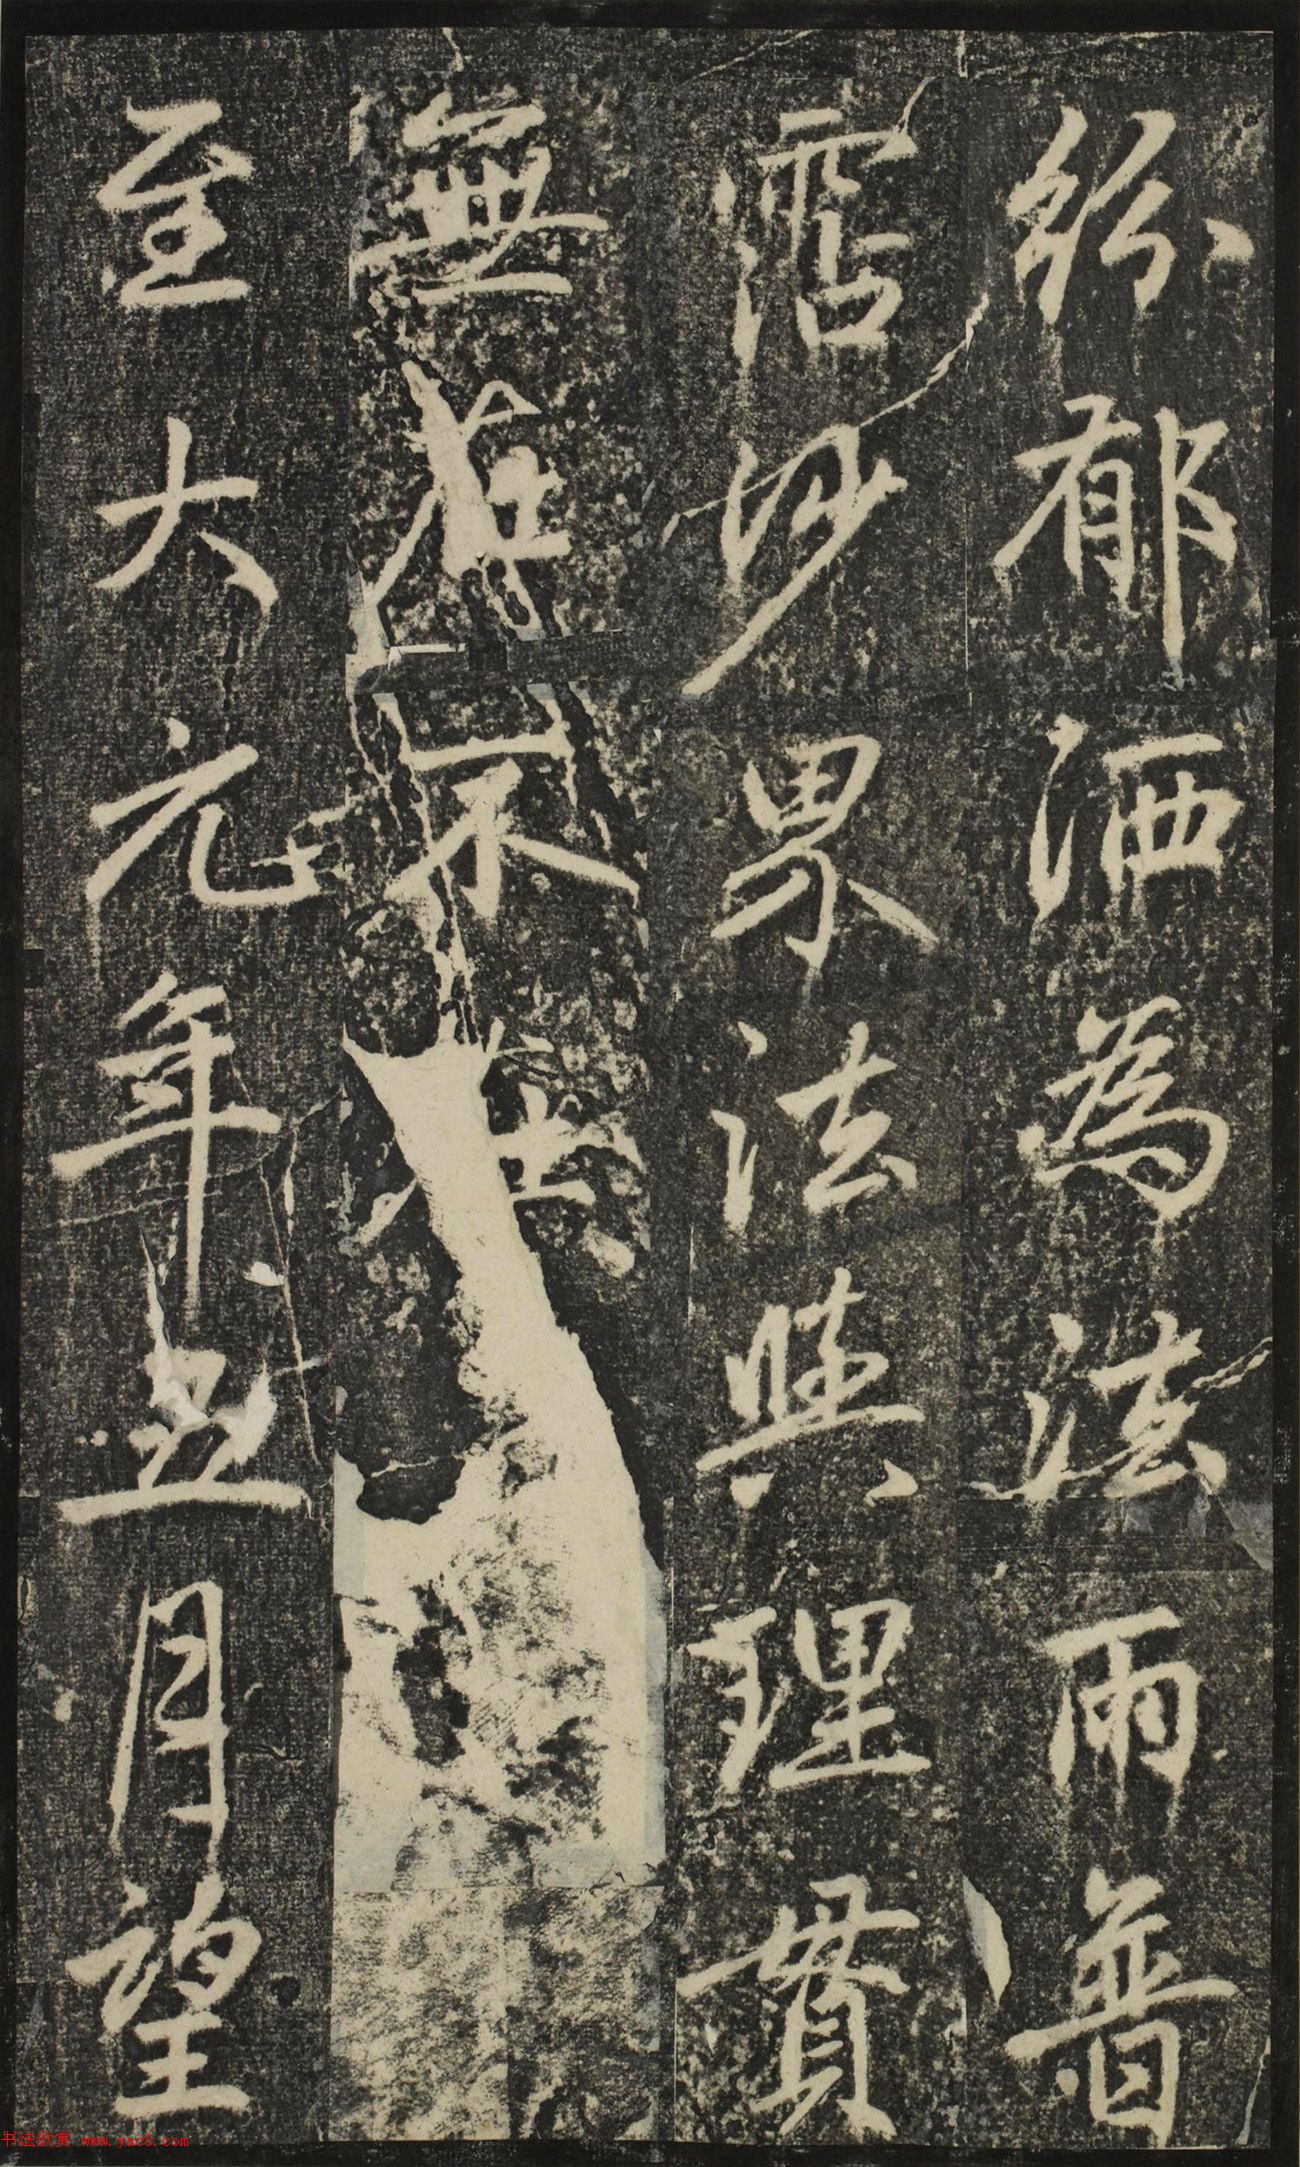 紛郁洒為法雨普
霑沙界法與理冥
無若不在
至大元年五月望
书法欣赏 www.yac8.com